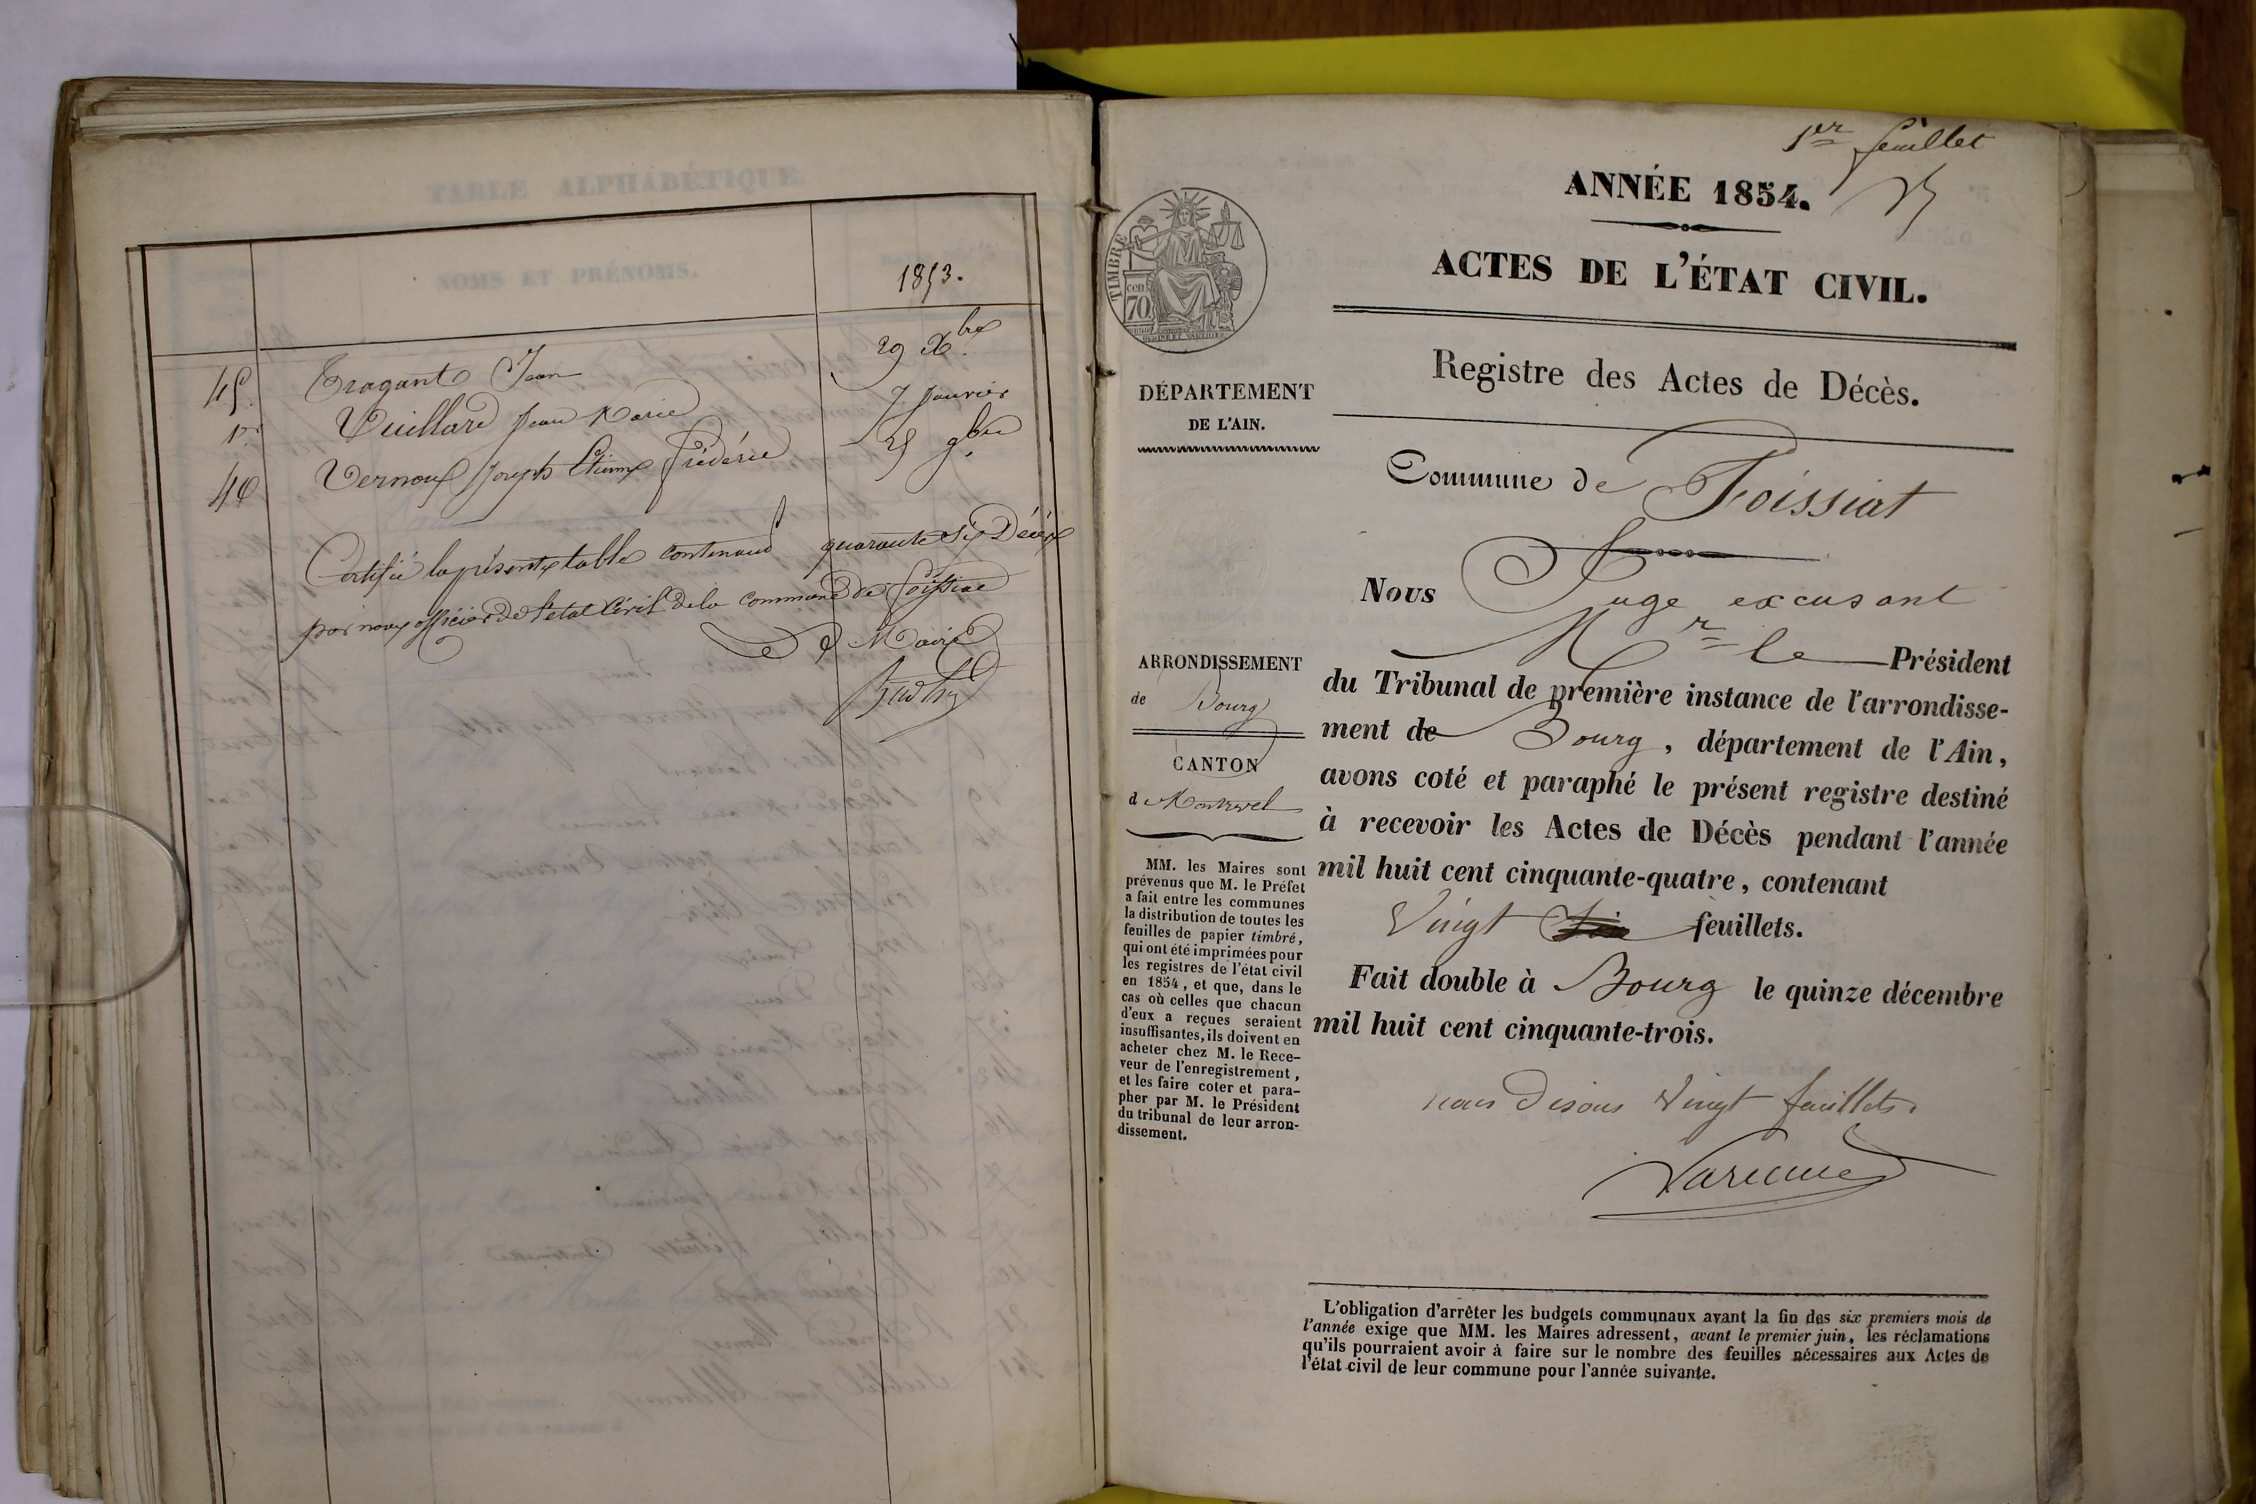 1853.
45. Tragant Jean 29 Xbre
1er Vuillard Jean Marie 7 Janvier
46 Vernoux Joseph Etienne Frédéric 25 9bre
Certifié la présente table contenant quarante six Décès
par nous officier de l'etat Civil de la commune de foissiat
Le Maire
1er feuillet
ANNÉE 1854.
TIMBRE
70 cen
ACTES DE L'ÉTAT CIVIL.
Registre des Actes de Décès.
DÉPARTEMENT
DE L'AIN.
Commune de Foissiat
Nous Juge excusant
Mr le Président
du Tribunal de première instance de l'arrondisse-
ment de Bourg, département de l'Ain,
avons coté et paraphé le présent registre destiné
à recevoir les Actes de Décès pendant l'année
mil huit cent cinquante-quatre, contenant
Vingt feuillets.
Fait double à Bourg le quinze décembre
mil huit cent cinquante-trois.
nous disons vingt feuillets.
ARRONDISSEMENT
de Bourg
CANTON
de Montrevel
MM. les Maires sont
prévenus que M. le Préfet
a fait entre les communes
la distribution de toutes les
feuilles de papier timbré,
qui ont été imprimées pour
les registres de l'état civil
en 1854, et que, dans le
cas où celles que chacun
d'eux a reçues seraient
insuffisantes, ils doivent en
acheter chez M. le Rece-
veur de l'enregistrement,
et les faire coter et para-
pher par M. le Président
du tribunal de leur arron-
dissement.
L'obligation d'arrêter les budgets communaux avant la fin des six premiers mois de
l'année exige que MM. les Maires adressent, avant le premier juin, les réclamations
qu'ils pourraient avoir à faire sur le nombre des feuilles nécessaires aux Actes de
l'état civil de leur commune pour l'année suivante.